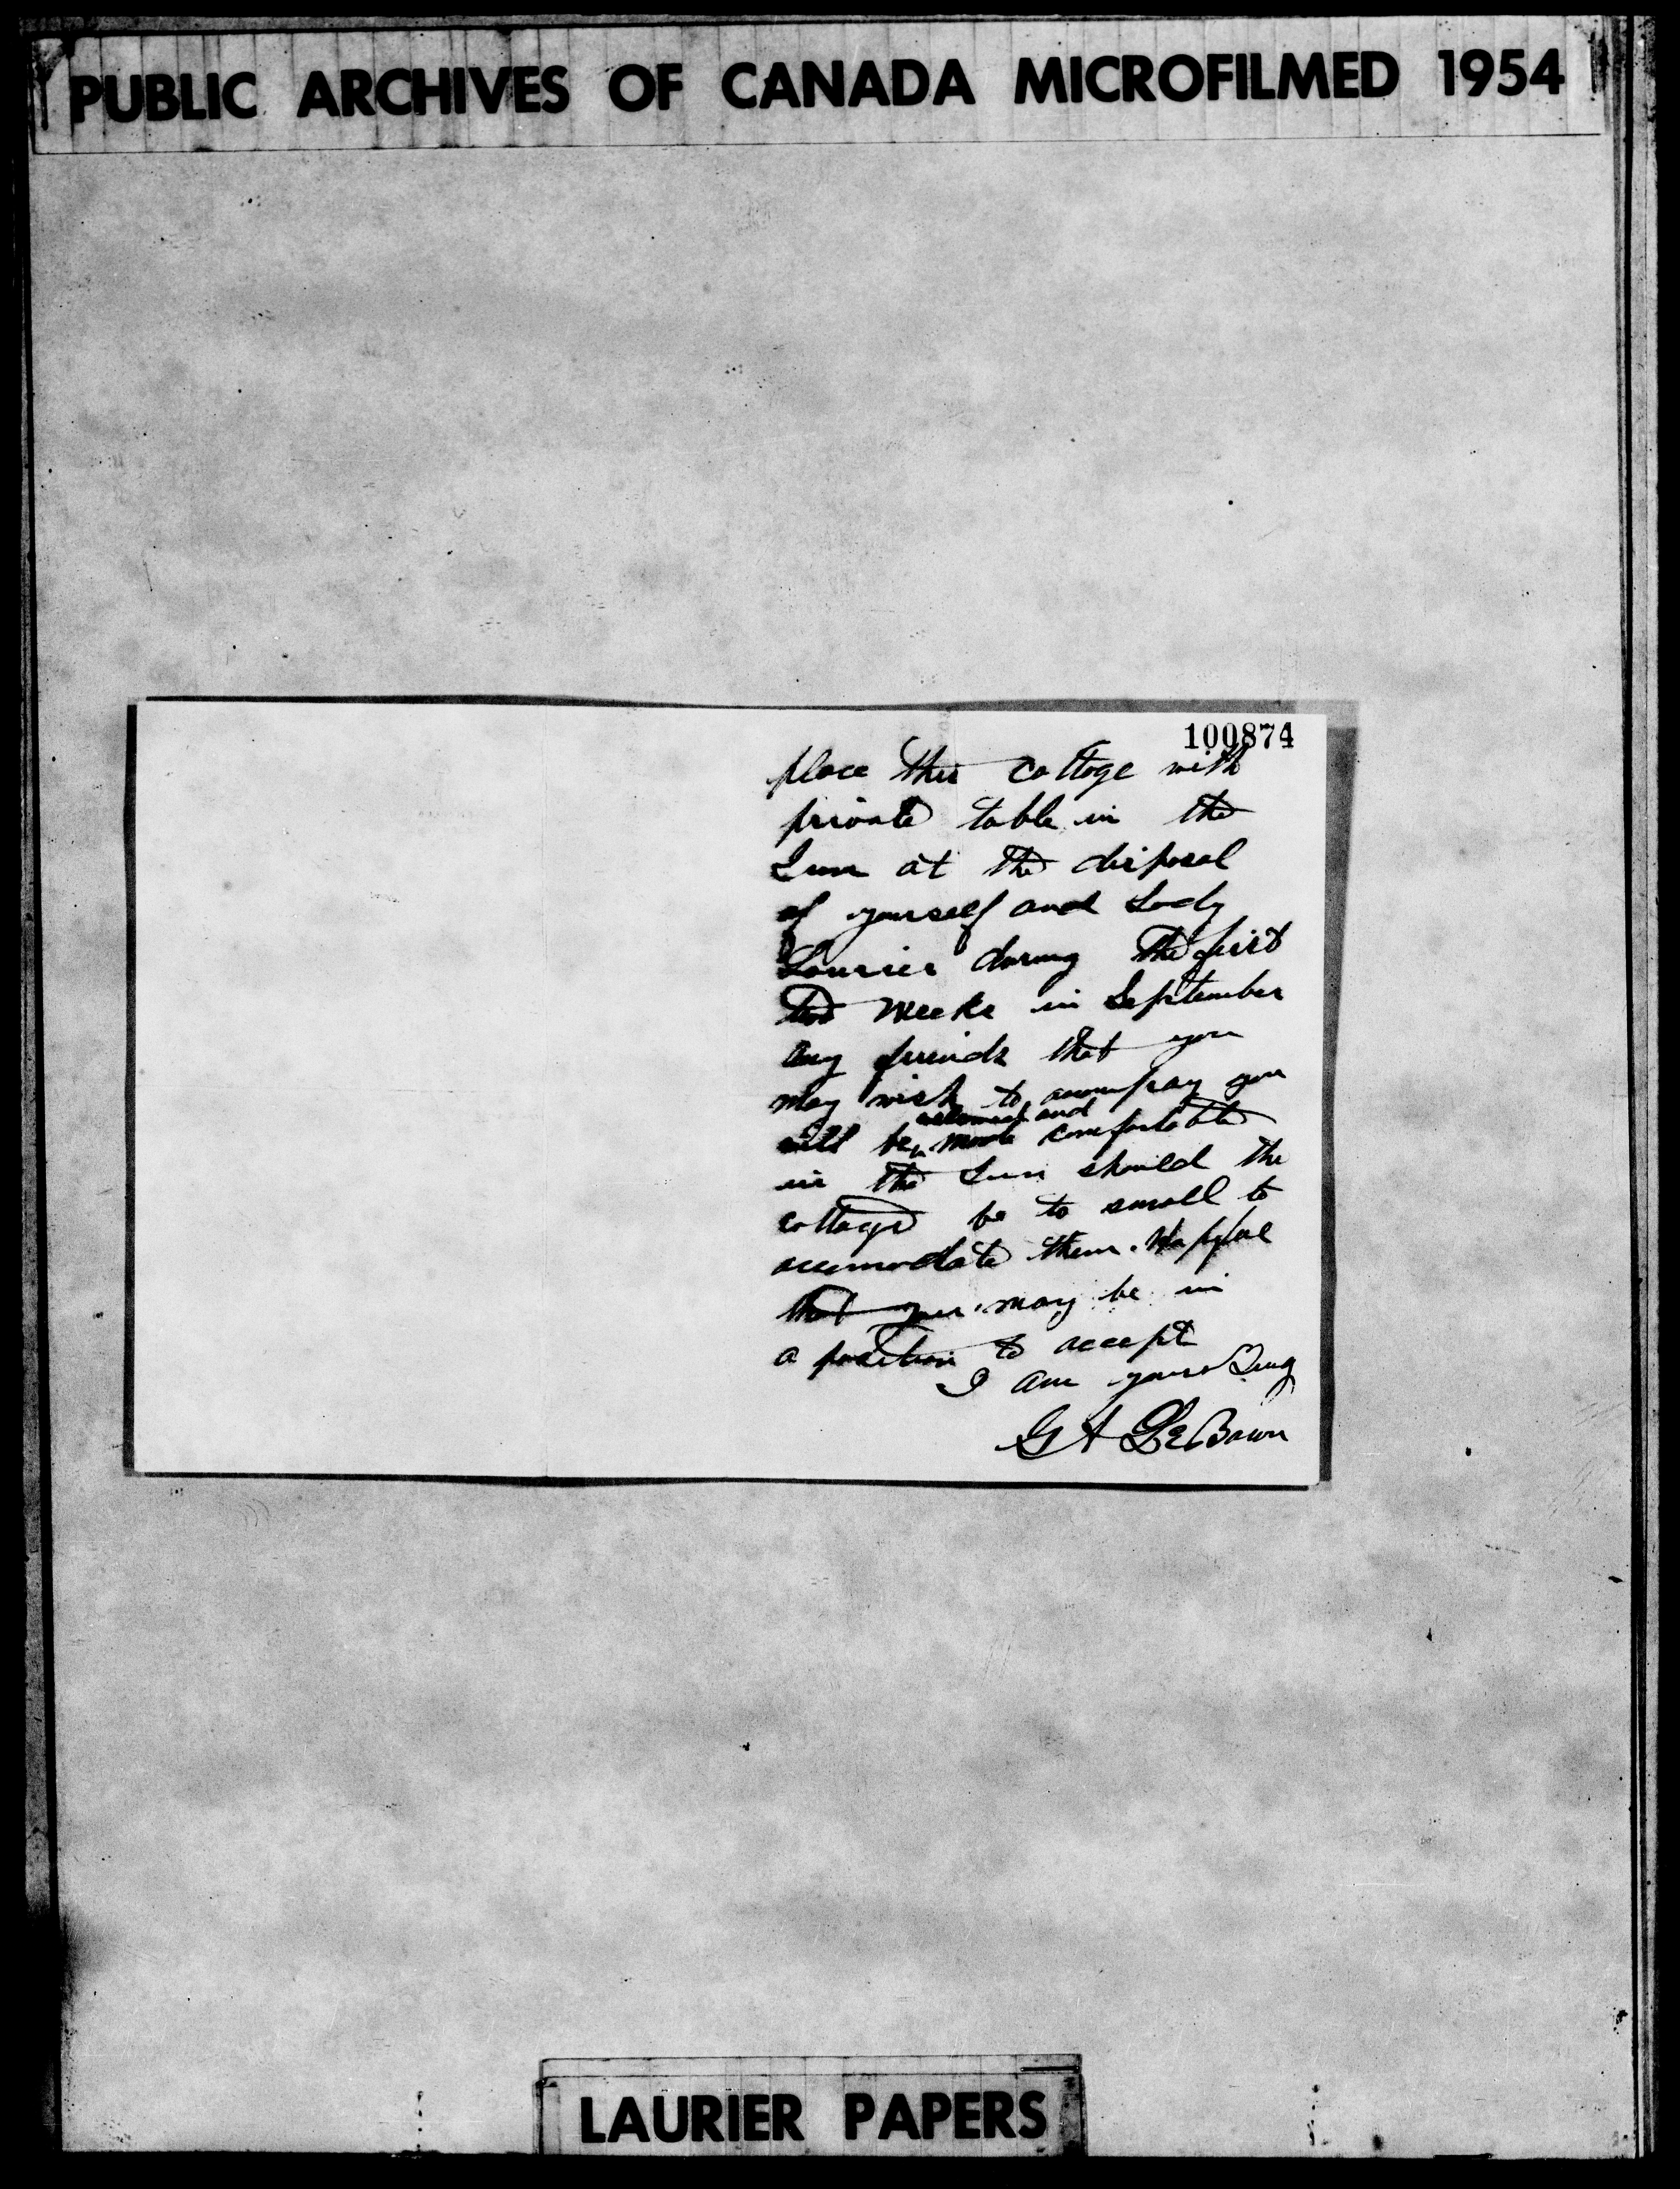 PUBLIC ARCHIVES OF CANADA MICROFILMED 1954
100874
place this cottage with
private table in the
Inn at the disposal
of yourself and Lady
Laurier during the first
two weeks in September
any friends that you
may wish to accompany you
welcomed and
will be made comfortable
in the Inn should the
cottage be to small to
accomodate them. Hopeful
that you may be in
a position to accept
I am yours truly
G A LeBaron
LAURIER PAPERS